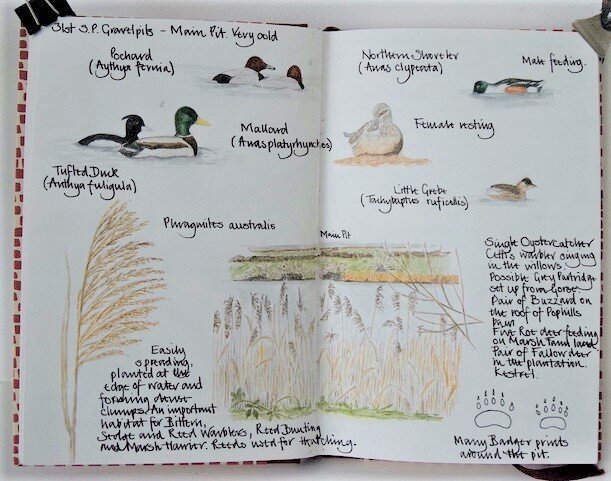 31st S.P. Gravelpits - Main Pit. Very cold
Pochard
(Aythya ferina)
Mallard
(Anas platyrhynchos)
Tufted Duck
(Aythya fuligula)
Phragmites australis
Easily
spreading,
planted at the
edge of water and
forming dense
clumps. An important
habitat for Bittern,
Sedge and Reed Warblers, Reed Bunting
and Marsh Harrier. Reeds used for thatching.
Northern Shoveler
(Anas clypeata)
Male feeding.
Female resting
Little Grebe
(Tachybaptus ruficollis)
Main Pit
Single Oystercatcher
Cetti's warbler singing
in the willows.
Possible Grey Partridge
set up from Gorse
Pair of Buzzard on
the roof of
Five Roe deer feeding
on Marsh Farm land
Pair of Fallow deer
in the plantation.
Kestrel.
Many Badger prints
around the pit.